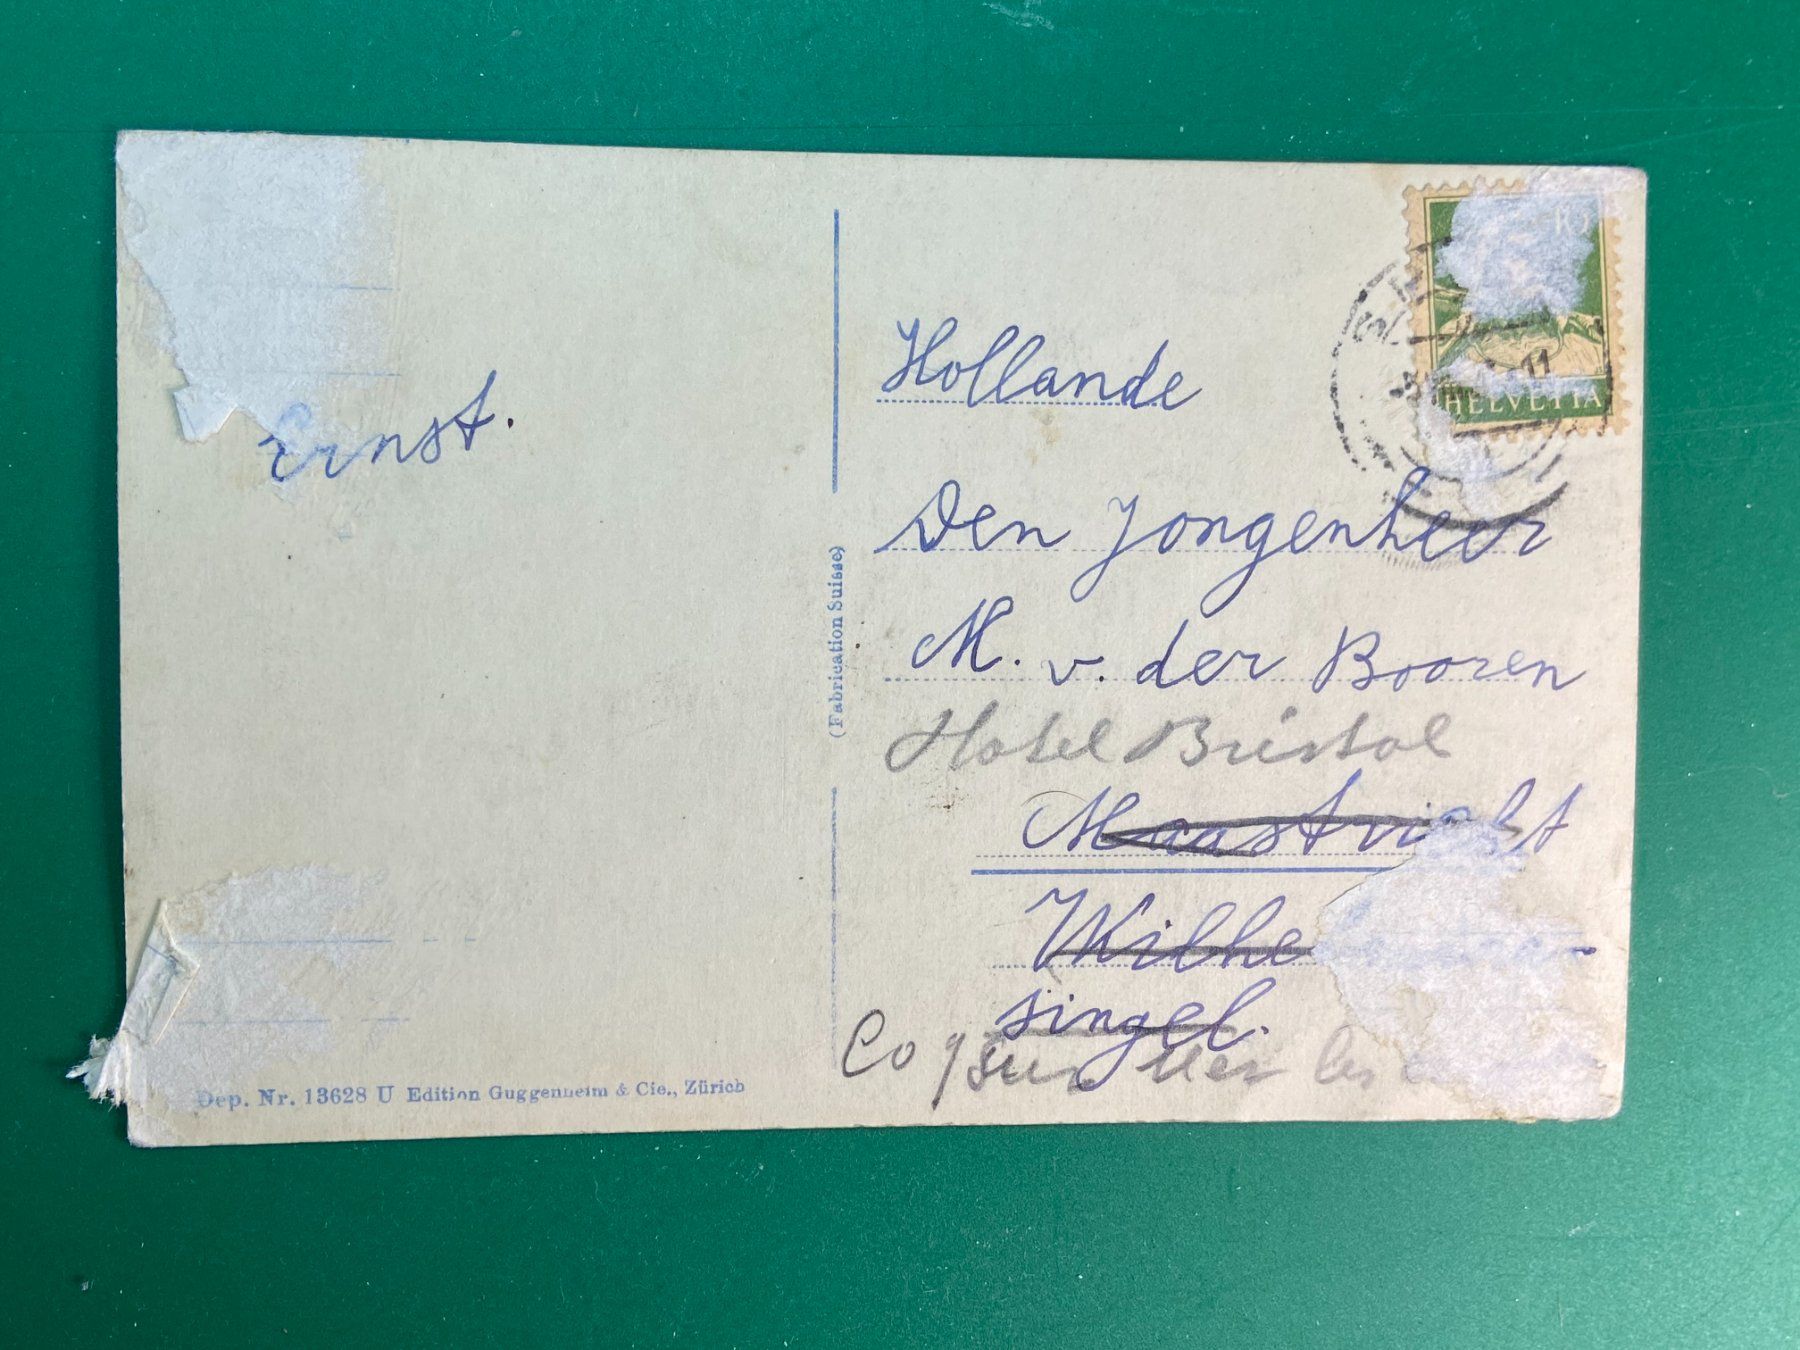 Ernst.
Dep. Nr. 13628 U Edition Guggenheim & Cie., Zürich
(Fabrication Suisse)
10
HELVETIA
11
Hollande
Den Jongenheer
M. v. der Booren
Hotel Bristol
Maastricht
Wilhe
singel.